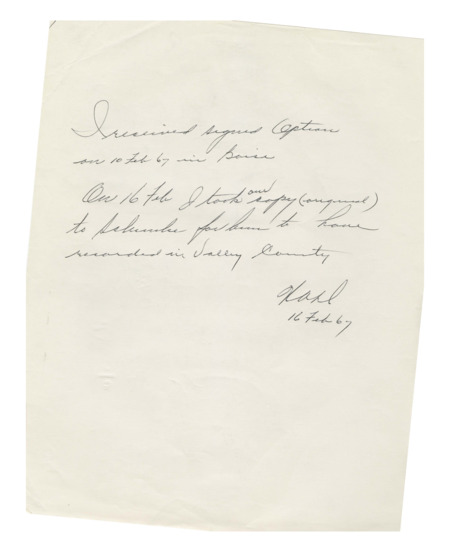 I received signed Option
on 10 Feb 67 in Boise
On 16 Feb I took one copy (original)
to for him to have
recorded in Valley County
16 Feb 67